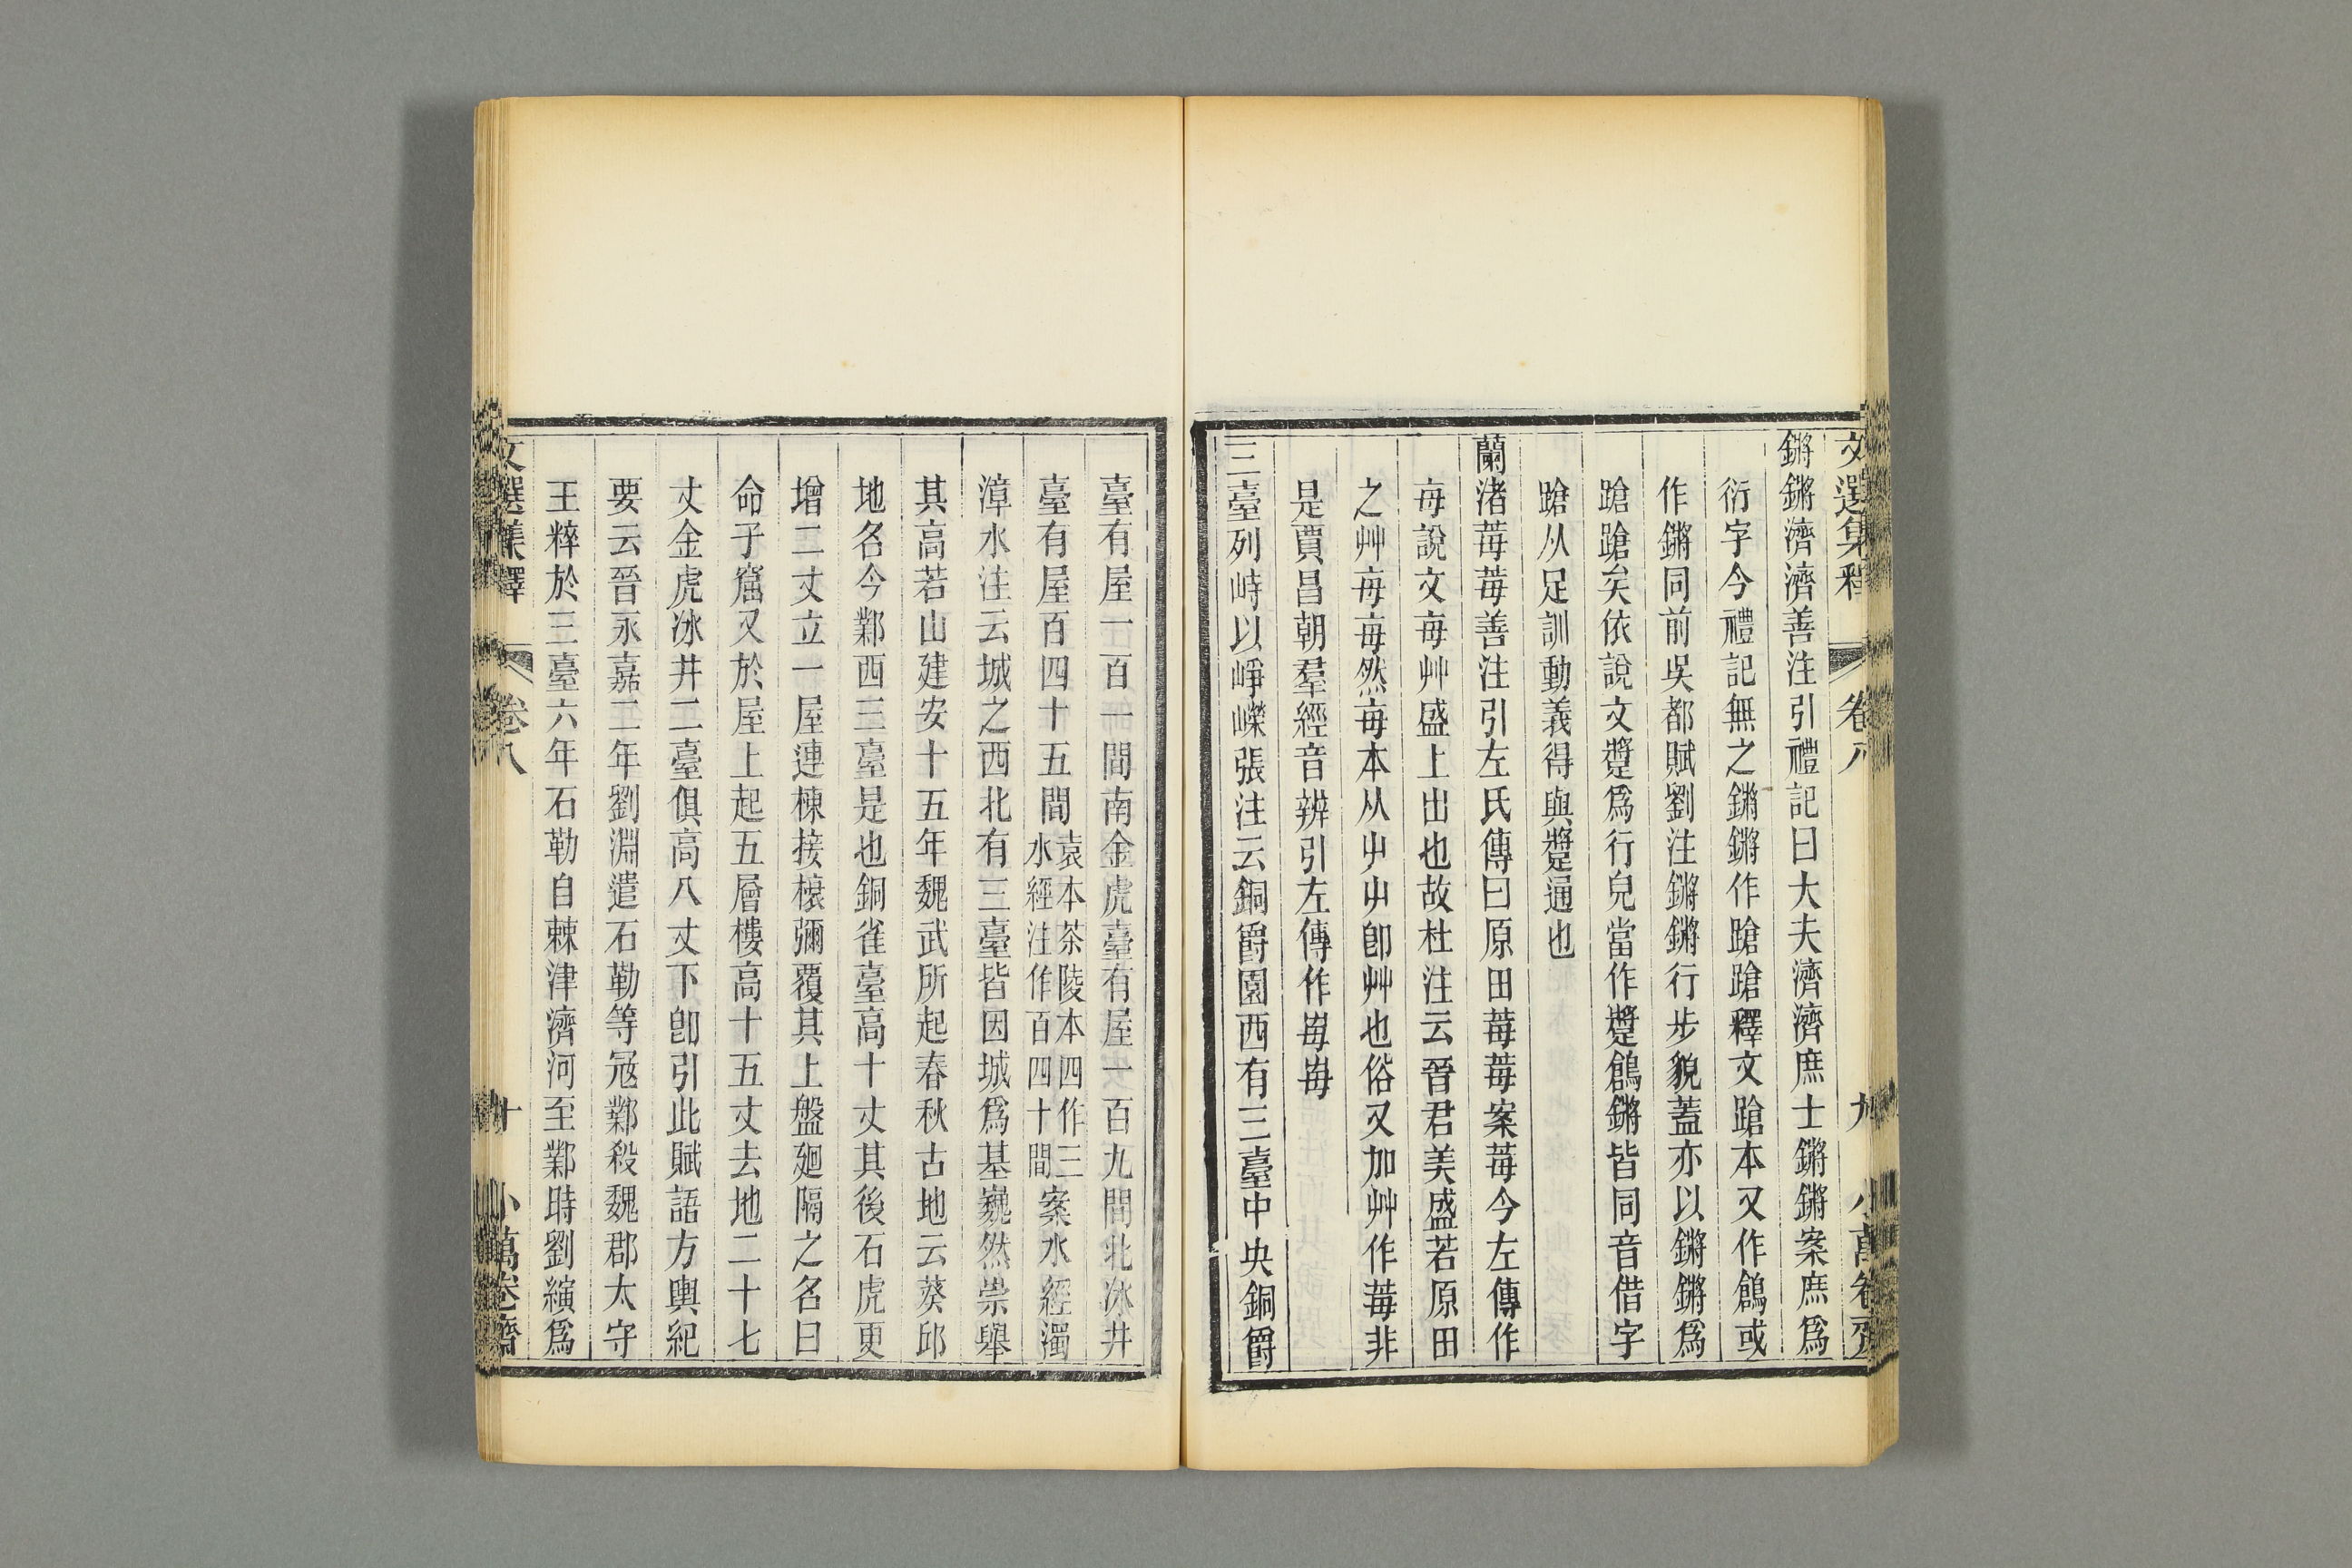 文選集釋 卷八 九 小萬卷齋
鏘鏘濟濟善注引禮記曰大夫濟濟庶士鏘鏘案庶爲
衍字今禮記無之鏘鏘作蹌蹌釋文蹌本又作鶬或
作鏘同前吳都賦劉注鏘鏘行步貌蓋亦以鏘鏘爲
蹌蹌矣依說文𨄚爲行皃當作𨄚鶬鏘皆同音借字
蹌从足訓動義得與𨄚通也
蘭渚莓莓善注引左氏傳曰原田莓莓案莓今左傳作
每說文每艸盛上出也故杜注云晉君美盛若原田
之艸每每然每本从屮屮卽艸也俗又加艸作莓非
是賈昌朝羣經音辨引左傳作㟂㟂
三臺列峙以崢嶸張注云銅爵園西有三臺中央銅爵
臺有屋一百一間南金虎臺有屋一百九間北冰井
臺有屋百四十五間袁本茶陵本四作三水經注作百四十間案水經濁
漳水注云城之西北有三臺皆因城爲基巍然崇舉
其高若山建安十五年魏武所起春秋古地云葵邱
地名今鄴西三臺是也銅雀臺高十丈其後石虎更
增二丈立一屋連棟接榱彌覆其上盤廻隔之名曰
命子窟又於屋上起五層樓高十五丈去地二十七
丈金虎冰井二臺俱高八丈下卽引此賦語方輿紀
要云晉永嘉二年劉淵遣石勒等冦鄴殺魏郡太守
王粹於三臺六年石勒自棘津濟河至鄴時劉演爲
文選集釋 卷八 十 小萬卷齋